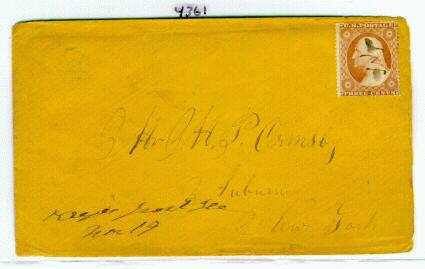 4361
U.S. POSTAGE
THREE CENTS
H. P. Ormsby,
Auburn
New York
Nov 19